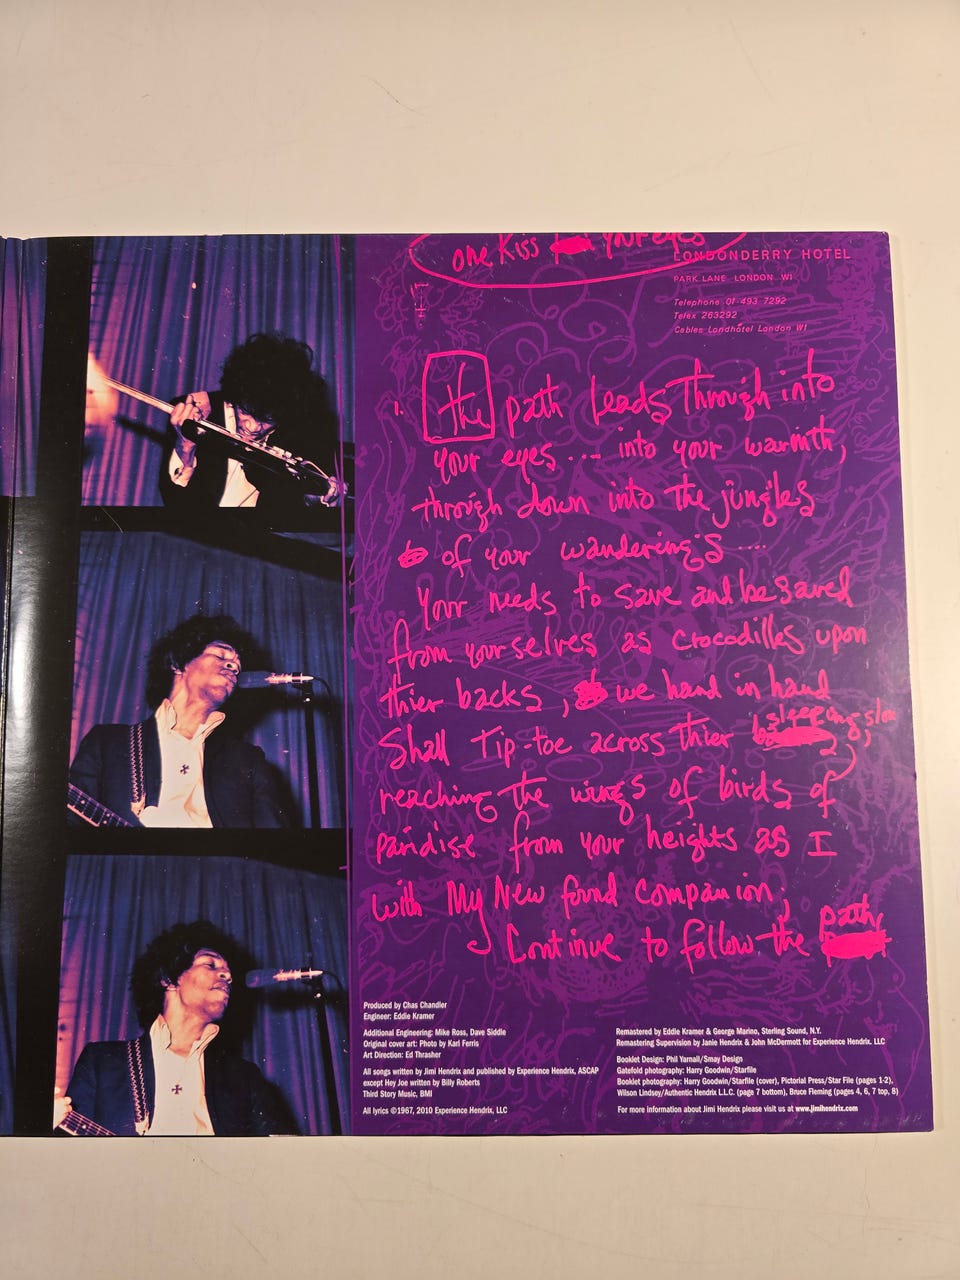 one Kiss your eyes
LONDONDERRY HOTEL
PARK LANE LONDON W1
Telephone 01-493 7292
Telex 263292
Cables Londhotel London W1
1. the path leads Through into
your eyes .... into your warmth,
through down into the jungles
of your wandering's ....
Your needs to save and be saved
from yourselves as Crocodilles upon
thier backs, we hand in hand
Shall Tip-toe across thier sleeping, slow
reaching the wings of birds of
paridise from your heights as I
with My New found Companion;
Continue to follow the path
Produced by Chas Chandler
Engineer: Eddie Kramer
Additional Engineering: Mike Ross, Dave Siddle
Original cover art: Photo by Karl Ferris
Art Direction: Ed Thrasher
All songs written by Jimi Hendrix and published by Experience Hendrix, ASCAP
except Hey Joe written by Billy Roberts
Third Story Music, BMI
All lyrics ©1967, 2010 Experience Hendrix, LLC
Remastered by Eddie Kramer & George Marino, Sterling Sound, N.Y.
Remastering Supervision by Janie Hendrix & John McDermott for Experience Hendrix. LLC
Booklet Design: Phil Yarnall/Smay Design
Gatefold photography: Harry Goodwin/Starfile
Booklet photography: Harry Goodwin/Starfile (cover), Pictorial Press/Star File (pages 1-2),
Wilson Lindsey/Authentic Hendrix L.L.C. (page 7 bottom), Bruce Fleming (pages 4, 6, 7 top, 8)
For more information about Jimi Hendrix please visit us at www.jimihendrix.com